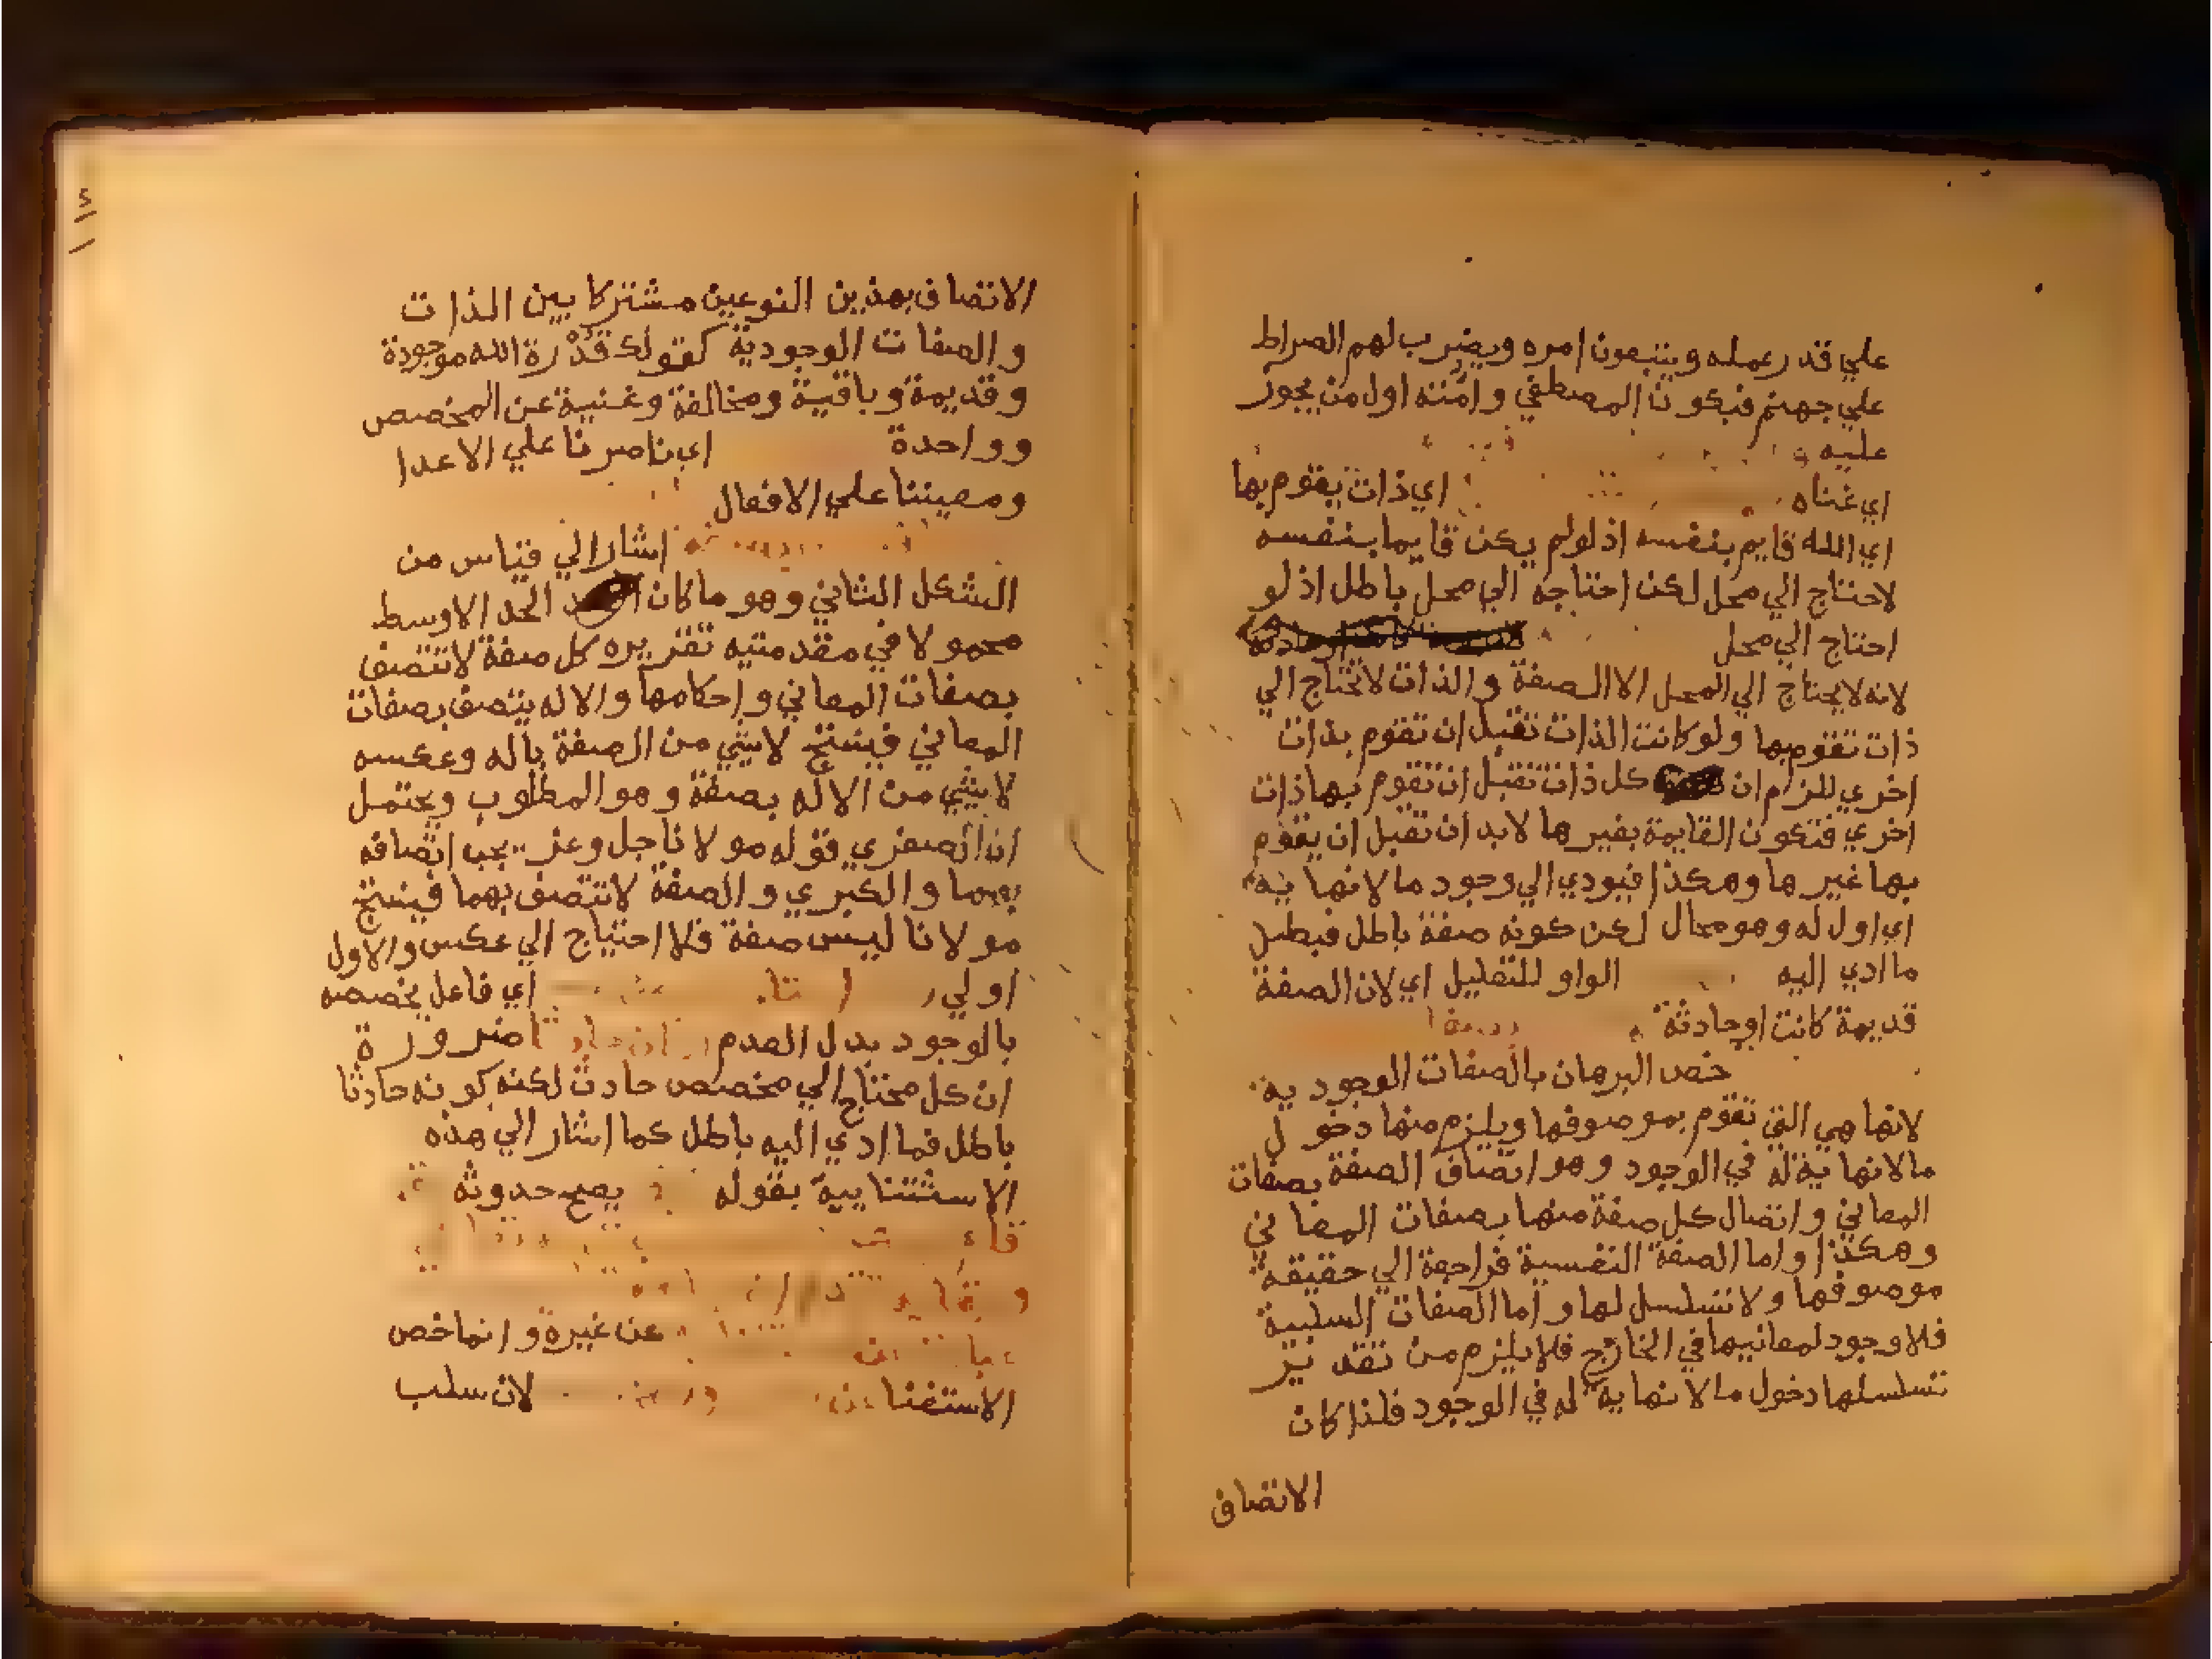 علي قدر عمله ويتبعون امره ويضرب لهم الصراط
علي جهنم فيكون المصطفي وامته اول من يجوز
عليه
اي غناه اي ذات يقوم بها
اي الله قايم بنفسه اذ لو لم يكن قايما بنفسه
لاحتاج الي محل لكن احتياجه الي محل باطل اذ لو
احتاج الي محل
لانه لا يحتاج الي المحل الا الصفة والذات لا تحتاج الي
ذات تقوم بها ولو كانت الذات تقبل ان تقوم بذات
اخري للزم ان كل ذات تقبل ان تقوم بها ذات
اخري فتكون القايمة بغيرها لا بد ان تقبل ان يقوم
بها غيرها وهكذا فيودي الي وجود ما لا نهاية
اي اول له وهو محال لكن كونه صفة باطل فبطل
ما ادي اليه الواو للتعليل اي لان الصفة
قديمة كانت او حادثة
خص البرهان بالصفات الوجودية
لانها هي التي تقوم بموصوفها ويلزم منها دخول
ما لا نهاية له في الوجود وهو اتصاف الصفة بصفات
المعاني واتصال كل صفة منها بصفات المعاني
وهكذا واما الصفة النفسية فراجعة الي حقيقة
موصوفها ولا تسلسل لها واما الصفات السلبية
فلا وجود لمعانيها في الخارج فلا يلزم من تقدير
تسلسلها دخول ما لا نهاية له في الوجود فلذا كان
الاتصاف
الاتصاف بهذين النوعين مشتركا بين الذات
والصفات الوجودية كقولك قدرة الله موجودة
وقديمة وباقية ومخالفة وغنية عن المخصص
وواحدة اي ناصرنا علي الاعدا
ومعيننا علي الافعال
اشار الي قياس من
الشكل الثاني وهو ما كان الحد الاوسط
محمولا في مقدمتيه تقريره كل صفة لا تتصف
بصفات المعاني واحكامها والاله يتصف بصفات
المعاني فينتج لا شي من الصفة باله وعكسه
لا شي من الاله بصفة وهو المطلوب ويحتمل
ان الصغري قوله مولانا جل وعز يجب اتصافه
بهما والكبري والصفة لا تتصف بهما فينتج
مولانا ليس صفة فلا احتياج الي عكس والاول
اولي اي فاعل يخصصه
بالوجود بدل العدم ضرورة
ان كل محتاج الي مخصص حادث لكنه كونه حادثا
باطل فما ادي اليه باطل كما اشار الي هذه
الاستثنايية بقوله يصح حدوثه
عن غيره وانما خص
الاستغنا لان سلب